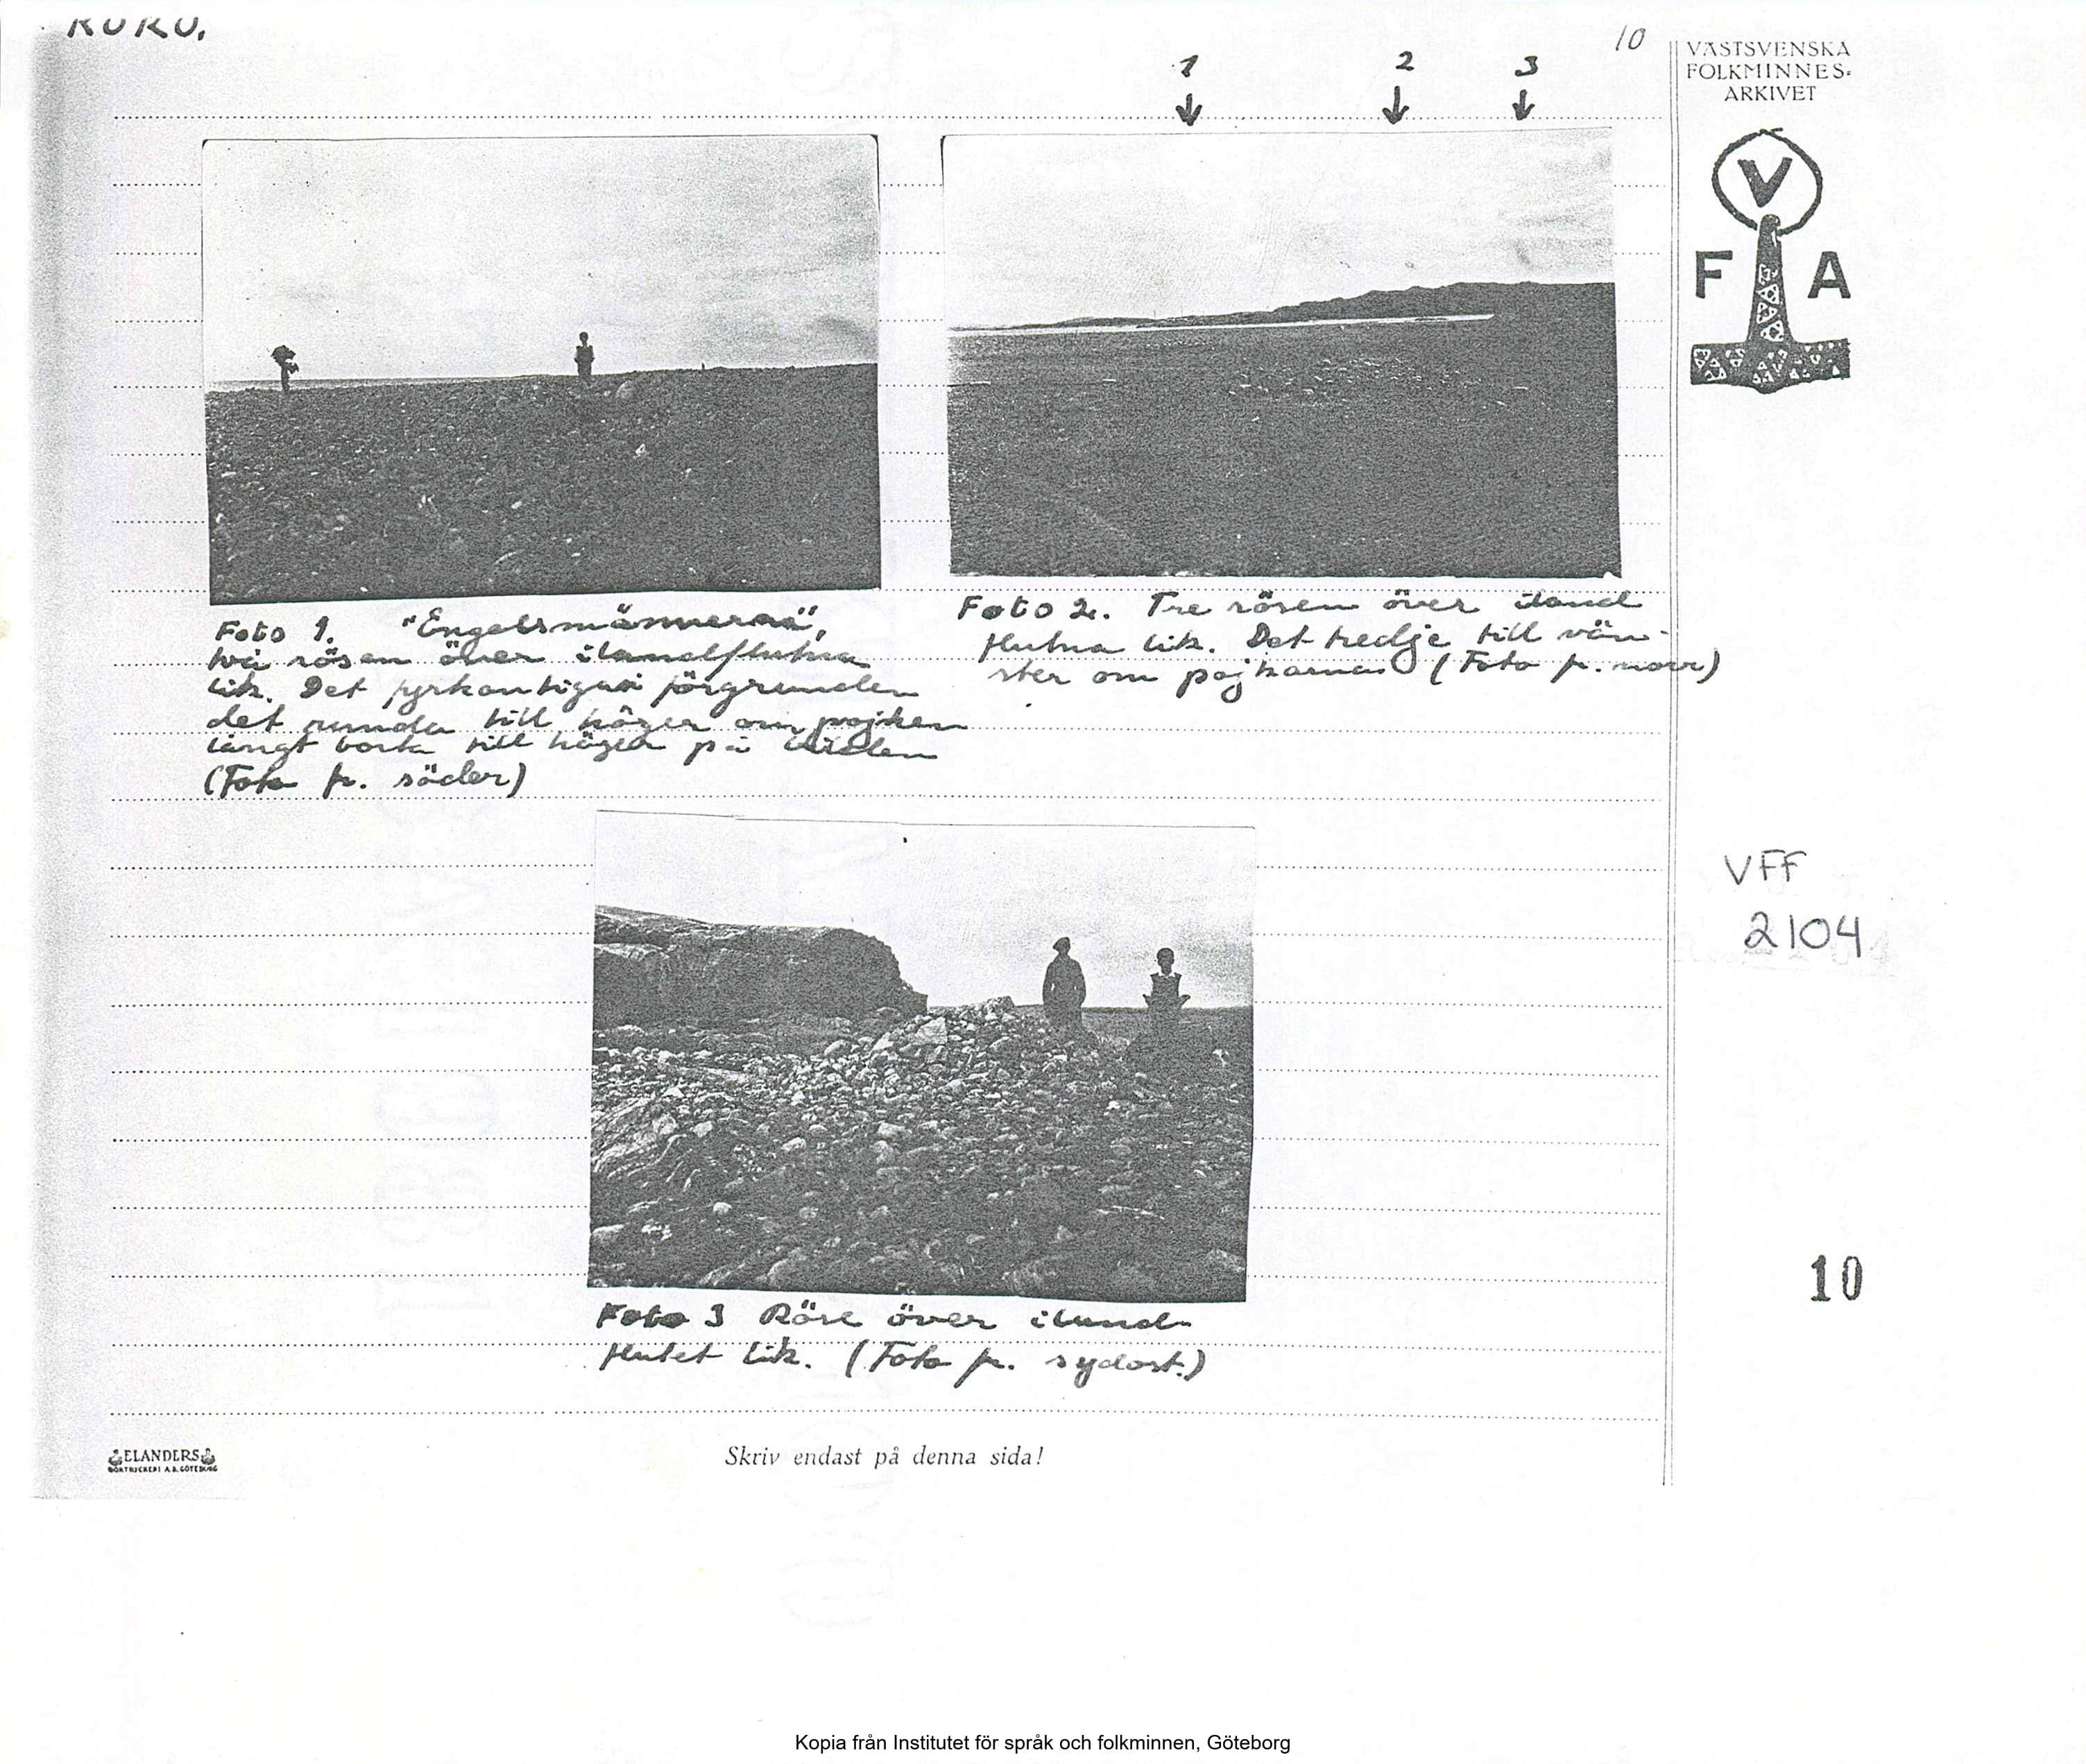 RÖRÖ.
10
1 2 3
VÄSTSVENSKA
FOLKMINNES-
ARKIVET
V
F A
Foto 1. "Engelsmännerna",
två rösen över ilandflutna
lik. Det fyrkantiga i förgrunden
det runda till höger om pojken
långt borta till höger på bilden
(Foto fr. söder)
Foto 2. Tre rösen över iland
flutna lik. Det tredje till vän-
ster om pojkarna (Foto fr. norr)
VFF
2104
10
Foto 3 Röse över iland-
flutet lik. (Foto fr. sydost.)
ELANDERS
BOKTRYCKERI A.B. GÖTEBORG
Skriv endast på denna sida!
Kopia från Institutet för språk och folkminnen, Göteborg